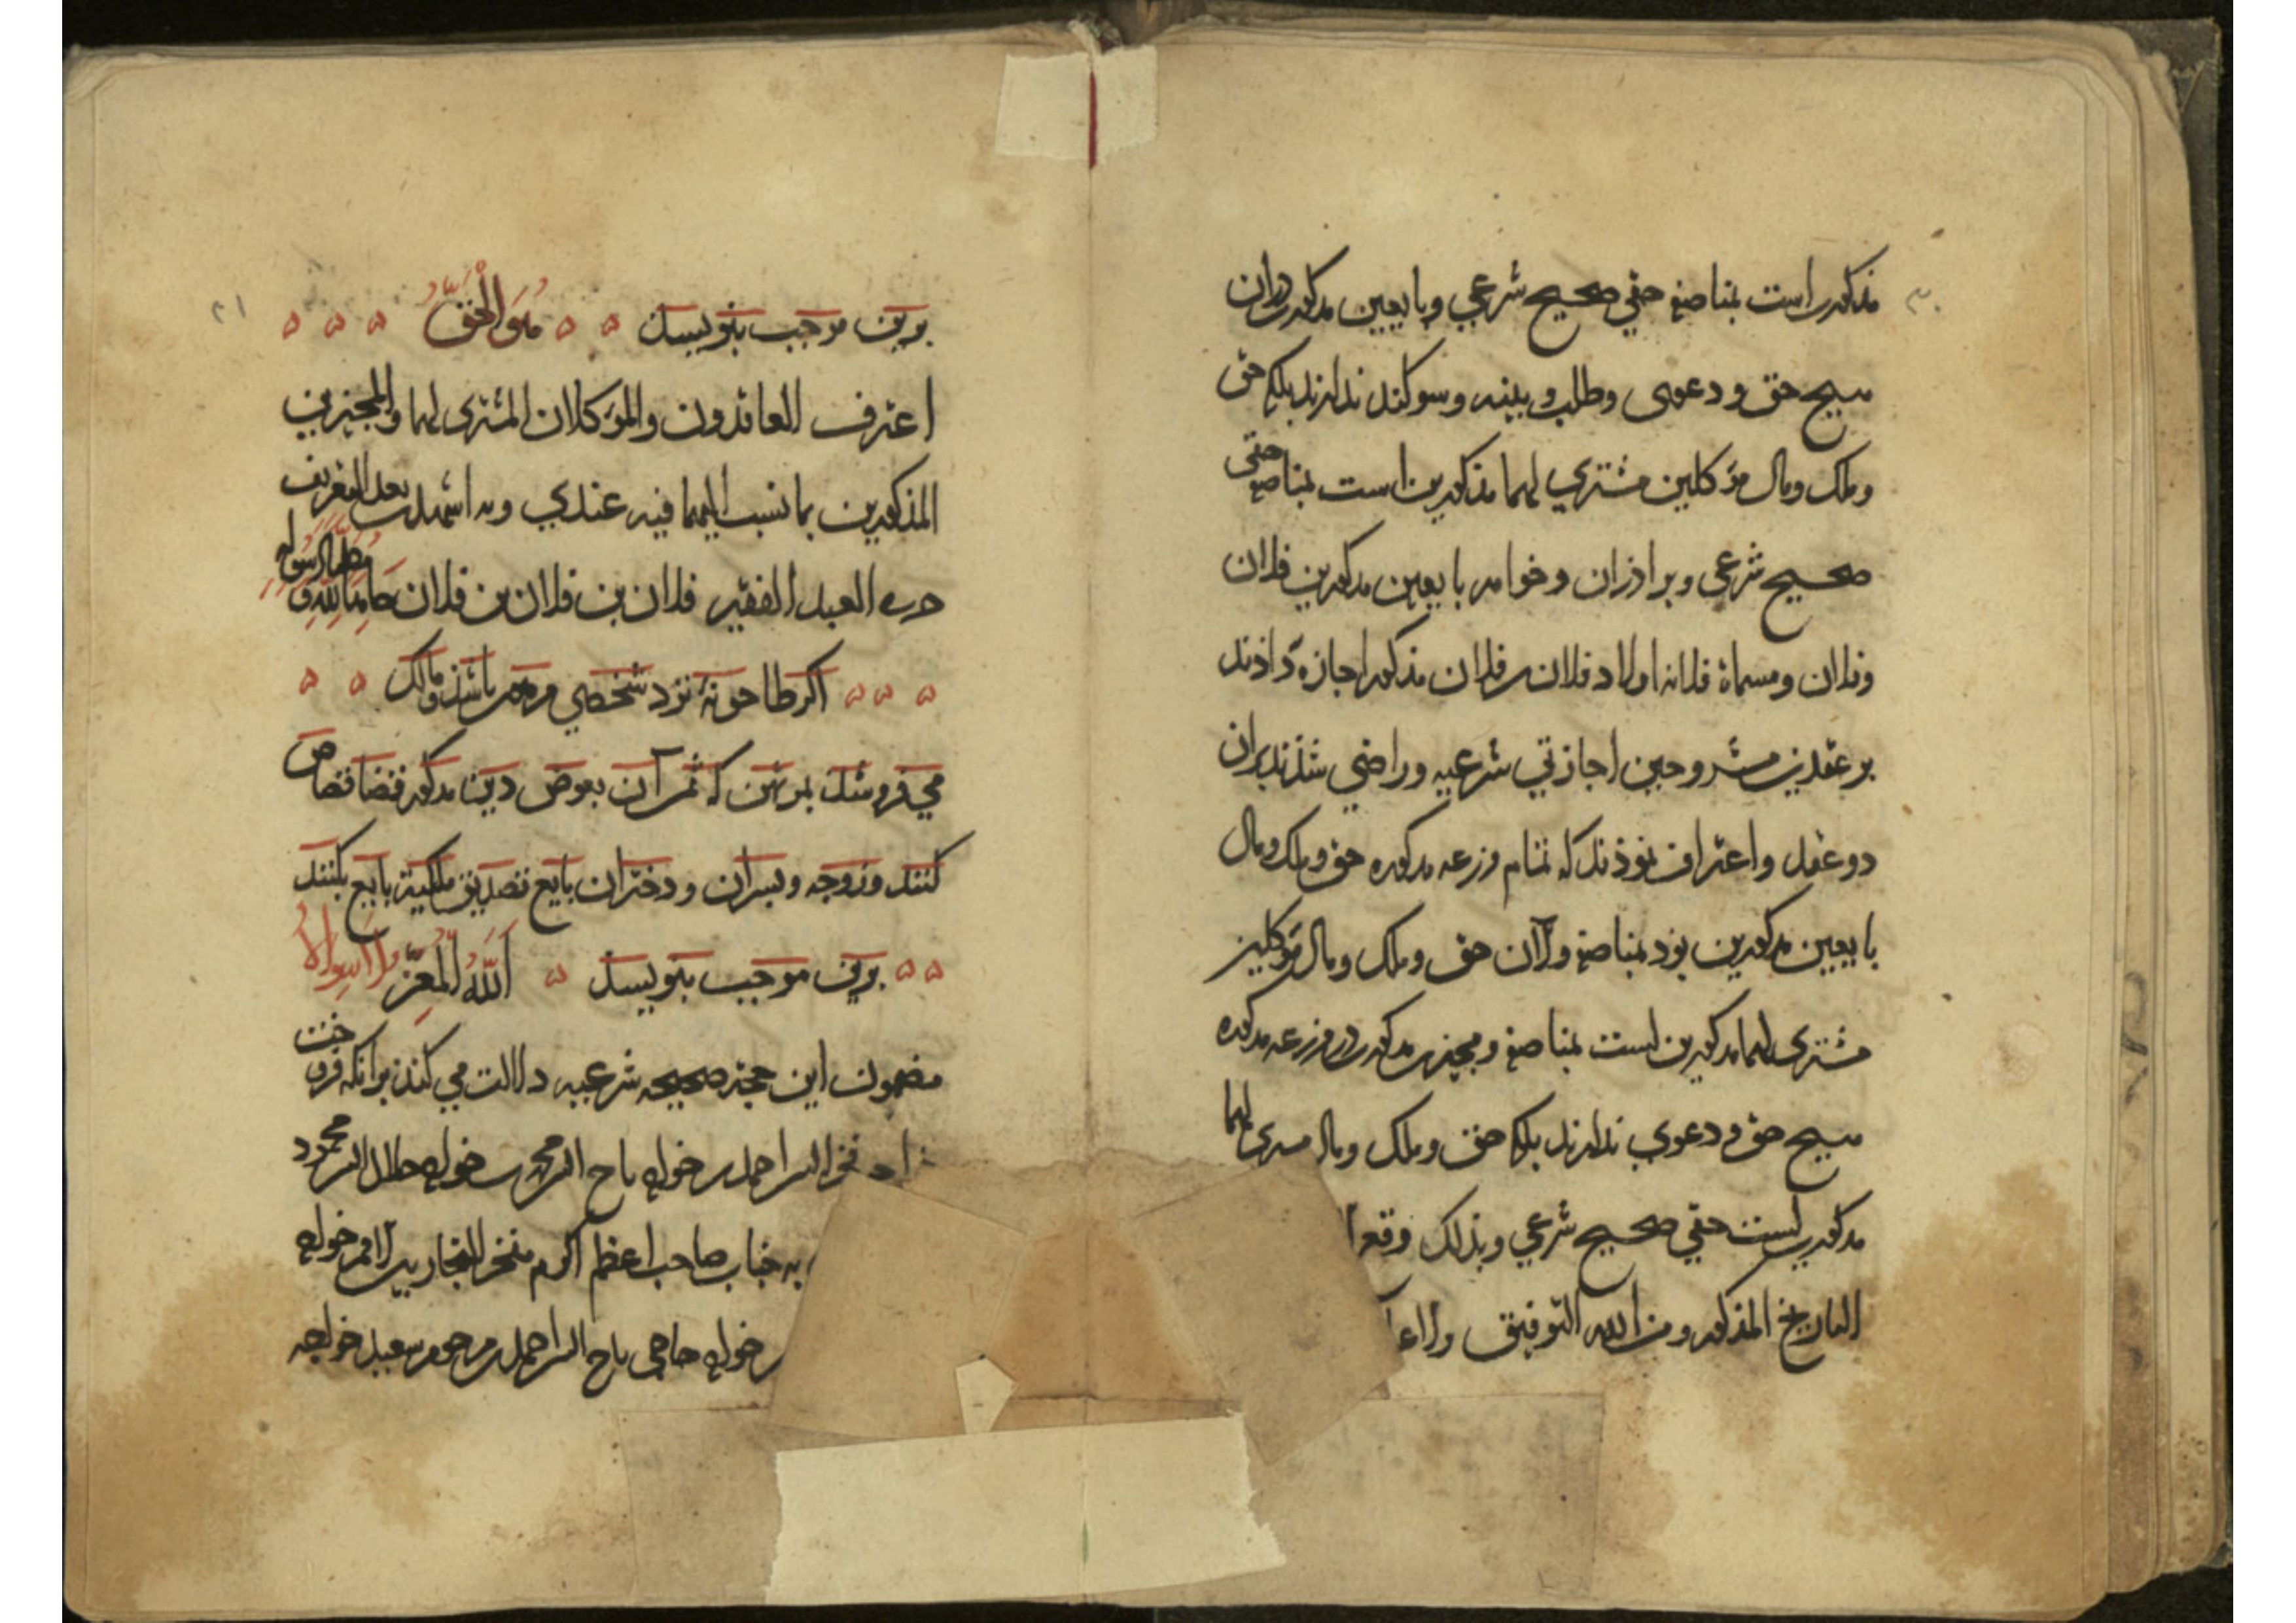 مذکورراست بمناصفه حقی صحیح شرعی وبایعین مذکور دران
هیچ حق و دعوی وطلب و بینه وسوکند ندارند بلکه حق
وملک ومال مؤکلین مشتری لهما مذکورین است بمناصفه حقی
صحیح شرعی وبراذران وخواهر بایعین مذکورین فلان
وفلان ومسماة فلانه اولاد فلان بن فلان مذکور اجازه داذند
برعقدین مشروحین اجازتی شرعیه وراضی شذند بران
دوعقد واعتراف نموذند که تمام مزرعه مذکوره حق وملک ومال
بایعین مذکورین بوذ بمناصفه والآن حق وملک ومال مؤکلین
مشتری لهما مذکورین است بمناصفه ومجیزین مذکور را در مزرعه مذکوره
هیچ حق ودعوی ندارند بلکه حق وملک ومال مشتری لهما
مذکورین است حقی صحیح شرعی وبذلک وقع
التاریخ المذکور ومن الله التوفیق
۳۰
برین موجب بنویسد هو الحق
اعترف العاقدون والمؤکلان المشتری لهما والمجیزین
المذکورین بما نسب الیهما فیه عندی وبه اشهد بعد التعریف
حرره العبد الفقیر فلان بن فلان بن فلان حامدا لله ومصلیا لرسوله
اکر طاحونهٔ نزد شخصی مرهون باشد ومالک
می فروشد بمرتهن که ثمن آن بعوض دین مذکور قضا قصاص
کنند وزوجه وبسران ودختران بایع تصدیق ملکیة بایع بکنند
برین موجب بنویسد الله المعز ولا سواه
مضمون این حجة صحیحه شرعیه دلالت می کند برانکه فروخت
فخر الدین احمد بن خواجه تاج الدین محمد بن خواجه جلال الدین محمود
به جناب صاحب اعظم اکرم مفخر التجار بین الامم خواجه
بن خواجه حاجی تاج الدین احمد بن مرحوم سعید خواجه
۲۱